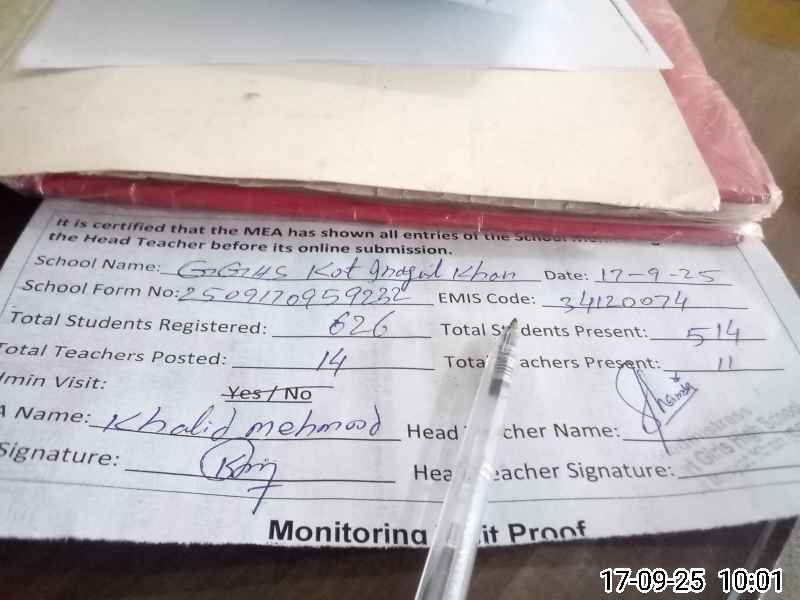 It is certified that the MEA has shown all entries of the School
the Head Teacher before its online submission.
School Name: GGHS Kot Khan Date: 17-9-25
School Form No: 2509170959232 EMIS Code: 34120074
Total Students Registered: 626 Total Students Present: 514
Total Teachers Posted: 14 Total Teachers Present: 11
dmin Visit: Yes / No
A Name: Khalid mehmood Head Teacher Name:
Signature: Head Teacher Signature:
Monitoring Visit Proof
17-09-25 10:01